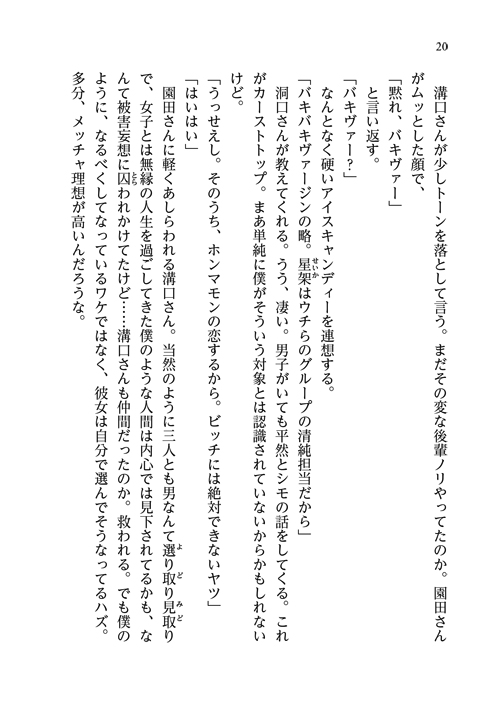 20
　溝口さんが少しトーンを落として言う。まだその変な後輩ノリやってたのか。園田さん
がムッとした顔で、
「黙れ、バキヴァー」
　と言い返す。
「バキヴァー？」
　なんとなく硬いアイスキャンディーを連想する。
「バキバキヴァージンの略。星架はウチらのグループの清純担当だから」
せいか
　洞口さんが教えてくれる。うう、凄い。男子がいても平然とシモの話をしてくる。これ
がカーストトップ。まあ単純に僕がそういう対象とは認識されていないからかもしれない
けど。
「うっせえし。そのうち、ホンマモンの恋するから。ビッチには絶対できないヤツ」
「はいはい」
　園田さんに軽くあしらわれる溝口さん。当然のように三人とも男なんて選り取り見取り
よ ど みど
で、女子とは無縁の人生を過ごしてきた僕のような人間は内心では見下されてるかも、な
んて被害妄想に囚われかけてたけど……溝口さんも仲間だったのか。救われる。でも僕の
とら
ように、なるべくしてなっているワケではなく、彼女は自分で選んでそうなってるハズ。
多分、メッチャ理想が高いんだろうな。